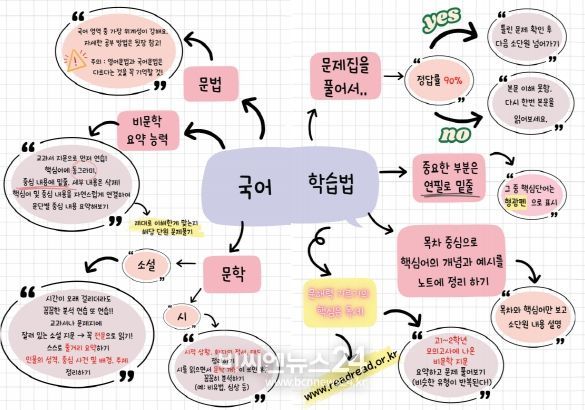 국어 영역 중 가장 위계성이 강해요.
자세한 공부 방법은 뒷장 참고!
주의 : 영어문법과 국어문법은
다르다는 것을 꼭 기억할 것!
문법
비문학
요약 능력
교과서 지문으로 먼저 연습!
핵심어에 동그라미,
중심 내용에 밑줄, 세부 내용은 삭제!
핵심어 및 중심 내용을 자연스럽게 연결하여
문단별 중심 내용 요약해보기
제대로 이해한게 맞는지
해당 단원 문제풀기
국어 학습법
문학
소설
시간이 오래 걸리더라도
꼼꼼한 분석 연습 또 연습!!
교과서나 문제지에
잘려 있는 소설 지문 → 꼭 전문으로 읽기!
스스로 줄거리 요약하기
인물의 성격, 중심 사건 및 배경, 주제
정리하기
시
시적 상황, 화자의 정서, 태도
시를 읽으면서
꼼꼼히 분석하기
(예: 비유법, 심상 등)
문제집을
풀어서..
정답률 90%
yes
틀린 문제 확인 후
다음 소단원 넘어가기
no
본문 이해 못함.
다시 한번 본문을
읽어보세요.
중요한 부분은
연필로 밑줄
그 중 핵심단어는
형광펜 으로 표시
목차 중심으로
핵심어의 개념과 예시를
노트에 정리 하기
목차와 핵심어만 보고
소단원 내용 설명
문해력 기르기의
핵심은 독서
www.readread.or.kr
고1~2학년
모의고사에 나온
비문학 지문
요약하고 문제 풀어보기
(비슷한 유형이 반복된다!)
비씨엔뉴스24
www.bcnnews24